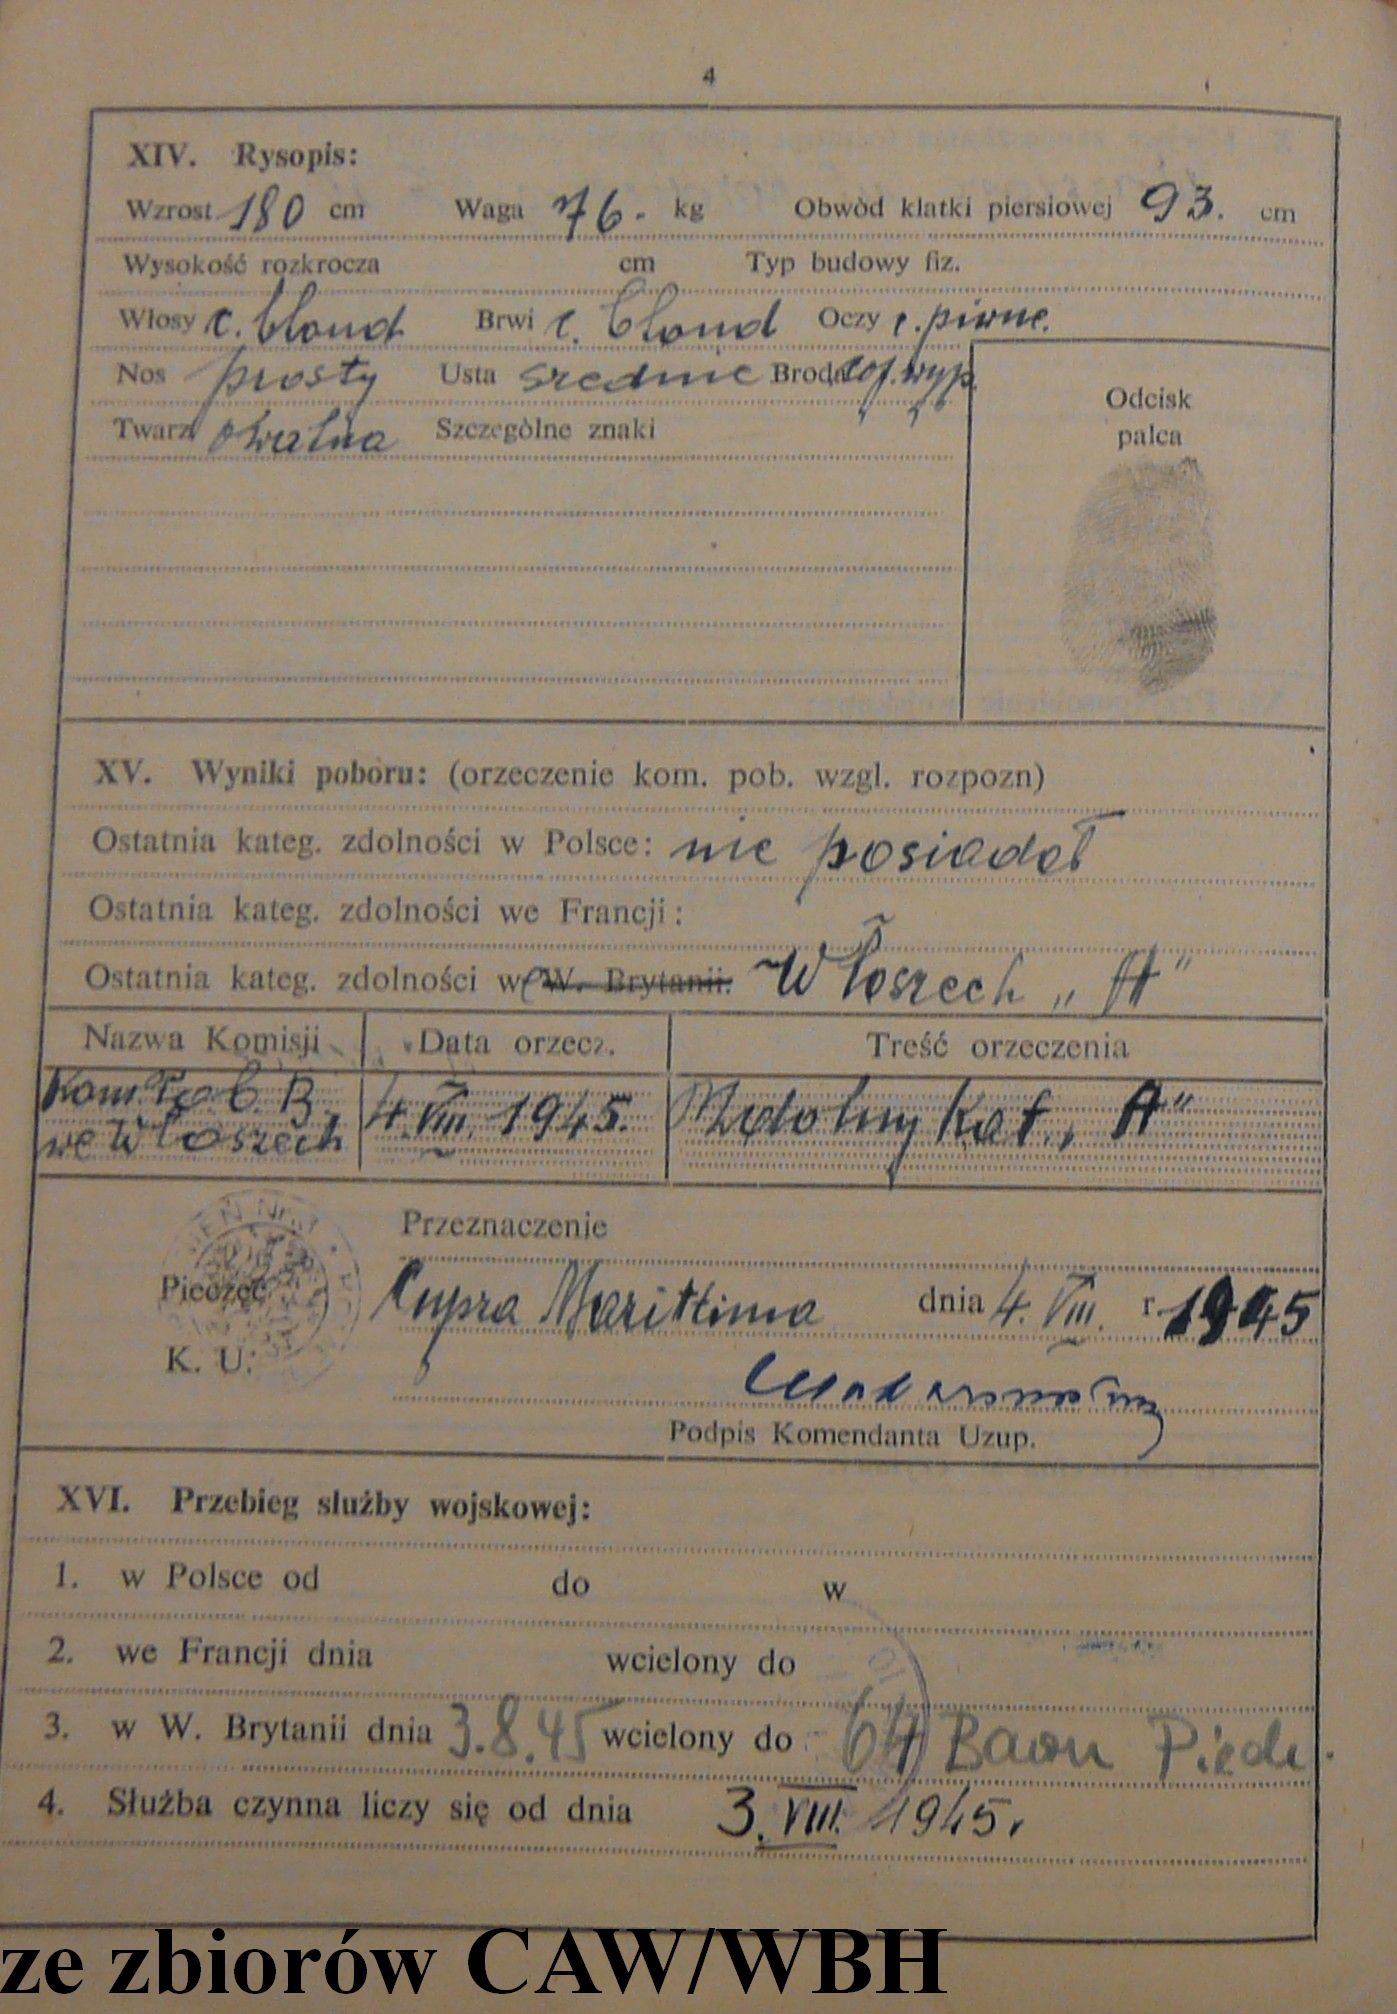 4
XIV. Rysopis:
Wzrost 180 cm Waga 76. kg Obwód klatki piersiowej 93. cm
Wysokość rozkrocza cm Typ budowy fiz.
Włosy c. blond Brwi c. blond Oczy c. piwne.
Nos prosty Usta srednie Broda
Twarz owalna Szczególne znaki
Odcisk
palca
XV. Wyniki poboru: (orzeczenie kom. pob. wzgl. rozpozn)
Ostatnia kateg. zdolności w Polsce: nie posiadał
Ostatnia kateg. zdolności we Francji:
Ostatnia kateg. zdolności w W. Brytanii: Włoszech „A"
Nazwa Komisji Data orzecz. Treść orzeczenia
Kom. Pob. B. 4.VIII.1945. Zdolny kat. „A"
we Włoszech
Przeznaczenie
Pieczęć Cupra Marittima dnia 4.VIII. r. 1945
K. U.
Podpis Komendanta Uzup.
XVI. Przebieg służby wojskowej:
1. w Polsce od do w
2. we Francji dnia wcielony do
3. w W. Brytanii dnia 3.8.45 wcielony do 64 Baon Piech.
4. Służba czynna liczy się od dnia 3.VIII.1945.
ze zbiorów CAW/WBH